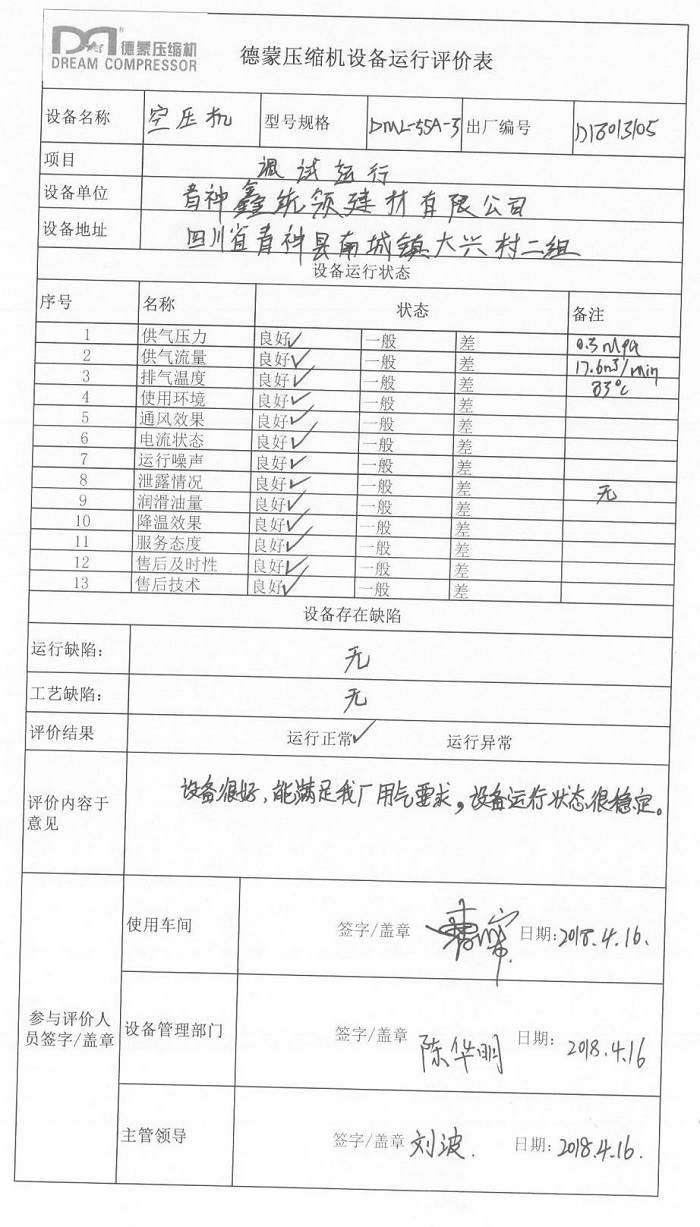 德蒙压缩机
DREAM COMPRESSOR
德蒙压缩机设备运行评价表
设备名称 空压机 型号规格 DML-55A-3 出厂编号 D18013105
项目 调试运行
设备单位 青神鑫统领建材有限公司
设备地址 四川省青神县南城镇大兴村二组
设备运行状态
序号 名称 状态 备注
1 供气压力 良好✓ 一般 差 0.3mpa
2 供气流量 良好✓ 一般 差 17.6m³/min
3 排气温度 良好✓ 一般 差 83℃
4 使用环境 良好✓ 一般 差
5 通风效果 良好✓ 一般 差
6 电流状态 良好✓ 一般 差
7 运行噪声 良好✓ 一般 差
8 泄露情况 良好✓ 一般 差 无
9 润滑油量 良好✓ 一般 差
10 降温效果 良好✓ 一般 差
11 服务态度 良好✓ 一般 差
12 售后及时性 良好✓ 一般 差
13 售后技术 良好✓ 一般 差
设备存在缺陷
运行缺陷： 无
工艺缺陷： 无
评价结果 运行正常✓ 运行异常
评价内容于
意见
设备很好，能满足我厂用气要求，设备运行状态很稳定。
参与评价人
员签字/盖章
使用车间 签字/盖章 日期：2018.4.16.
设备管理部门 签字/盖章 陈华明 日期： 2018.4.16
主管领导 签字/盖章 刘波. 日期：2018.4.16.